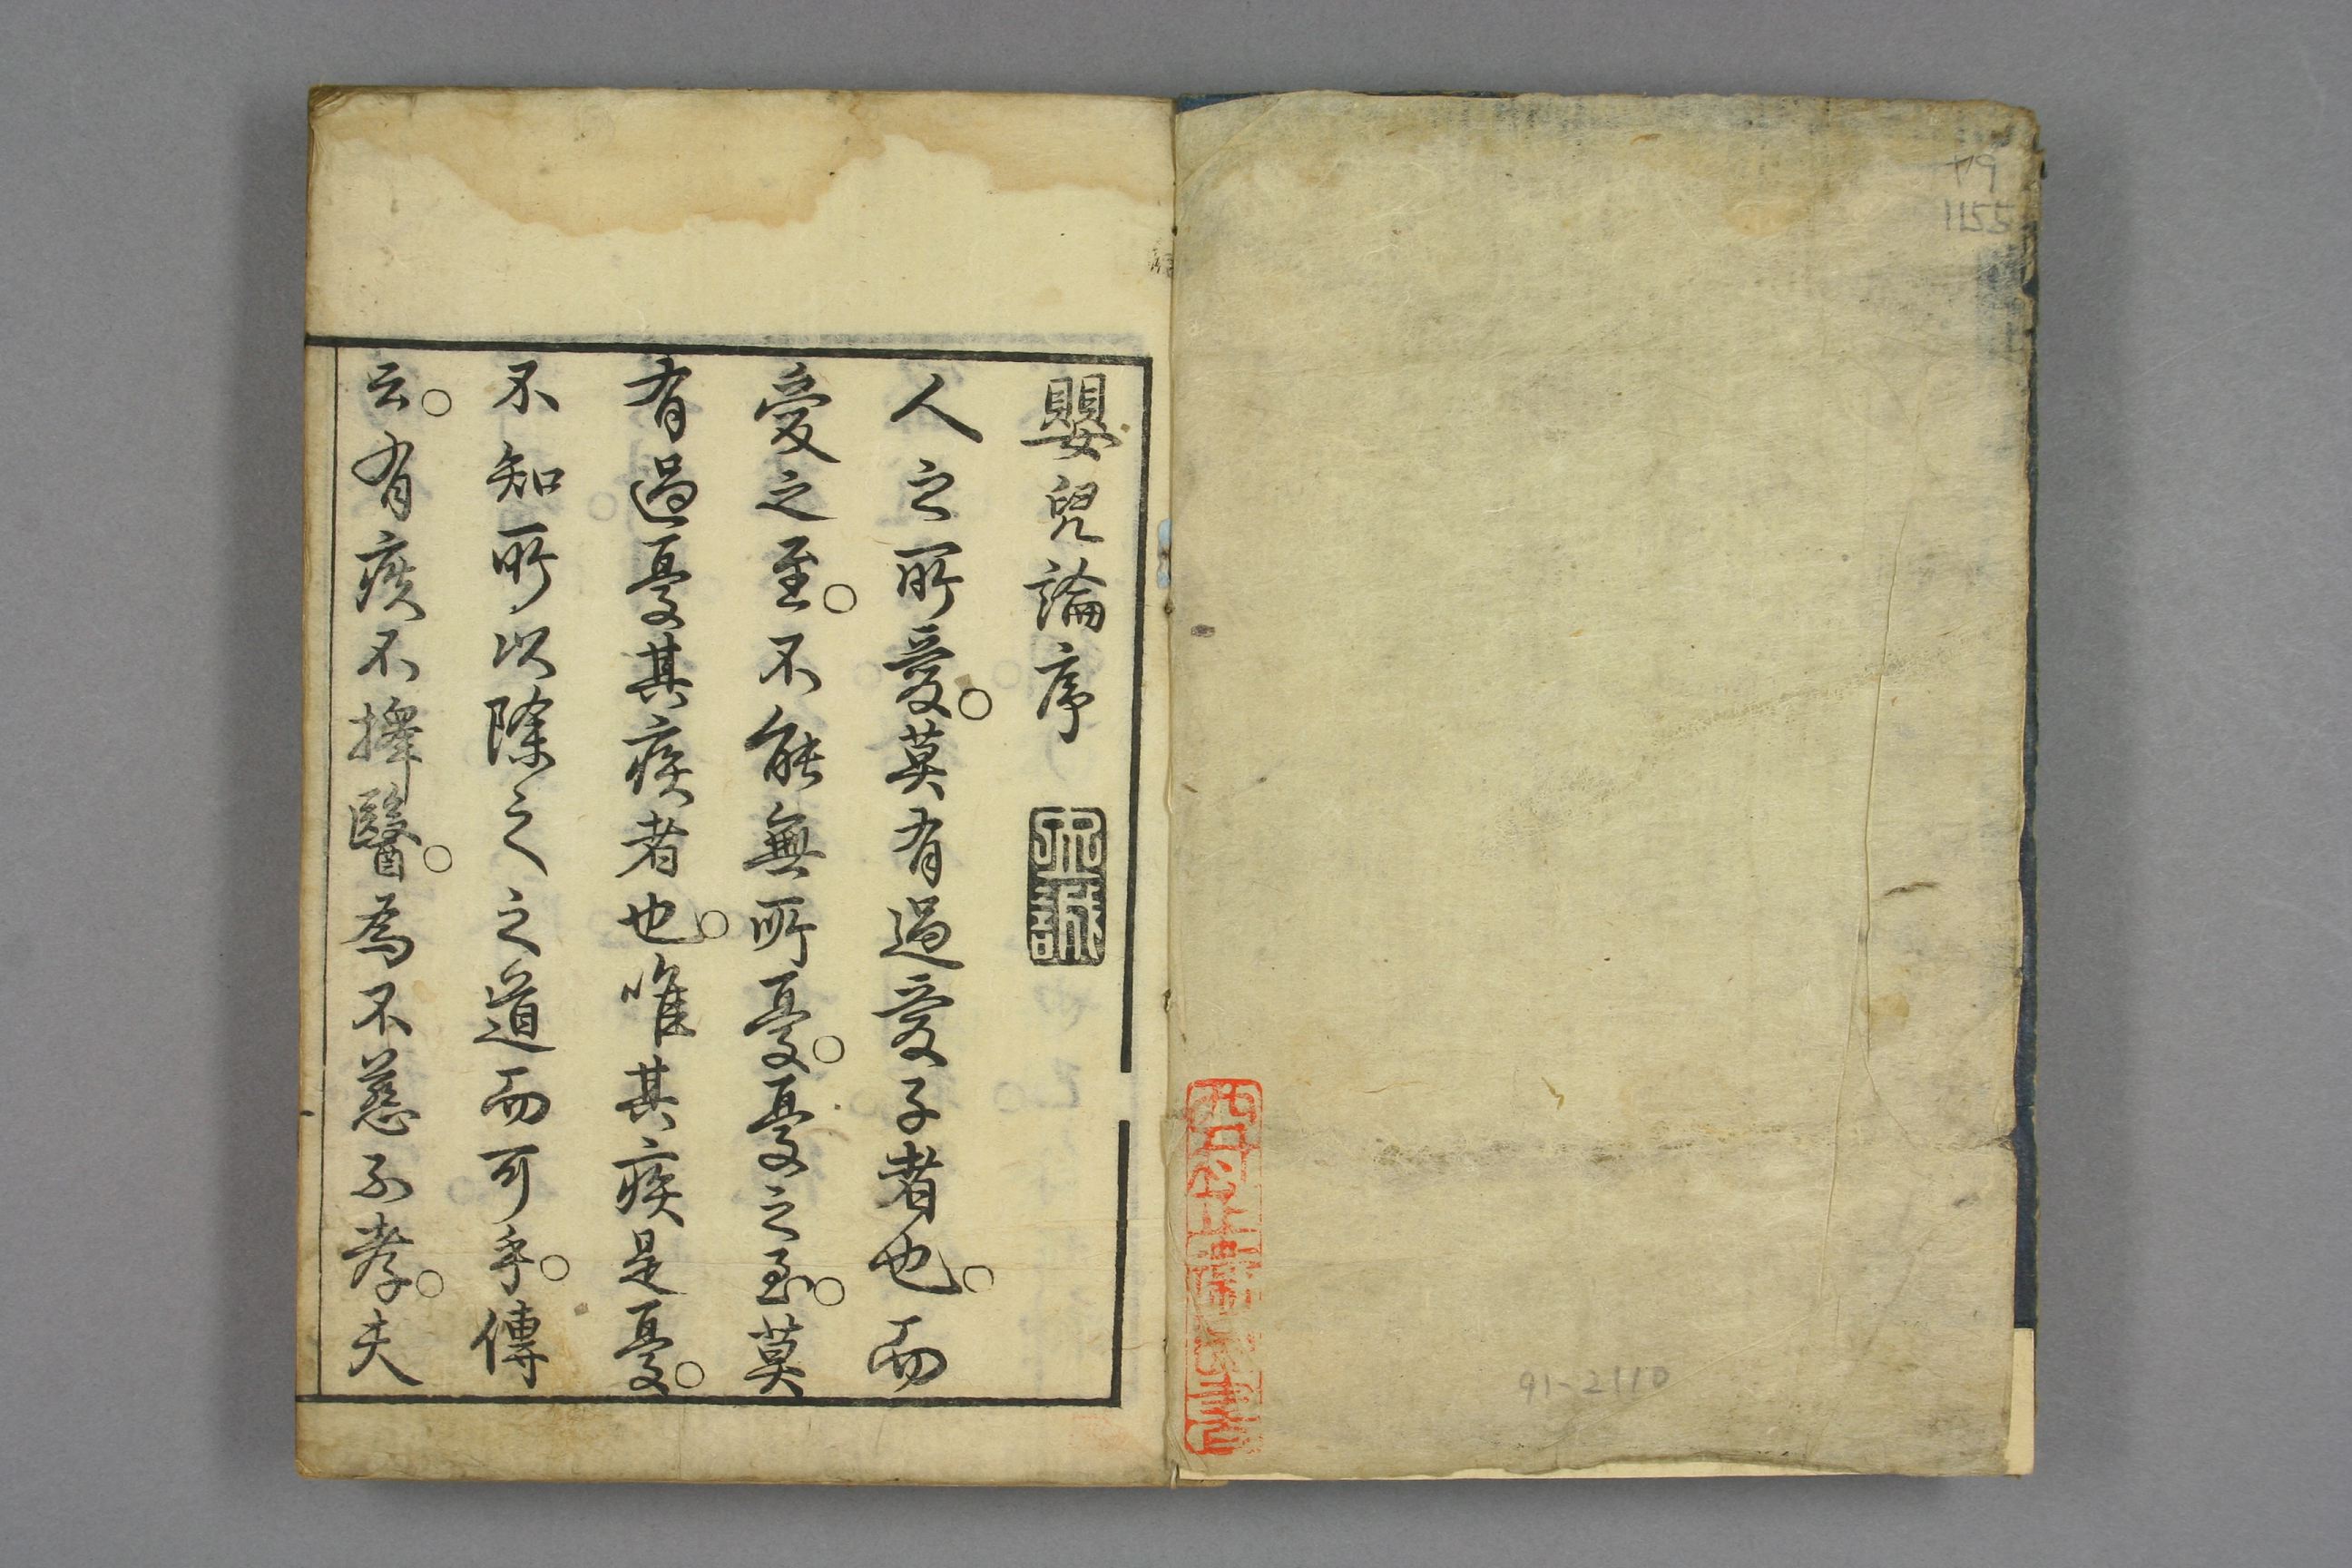 44
1155
91-2110
嬰兒論序
人之所愛。莫有過愛子者也。而
愛之至。不能無所憂。憂之至。莫
有過憂其疾者也。唯其疾是憂。
不知所以除之之道而可乎。傳
云。有疾不擇醫。為不慈不孝。夫